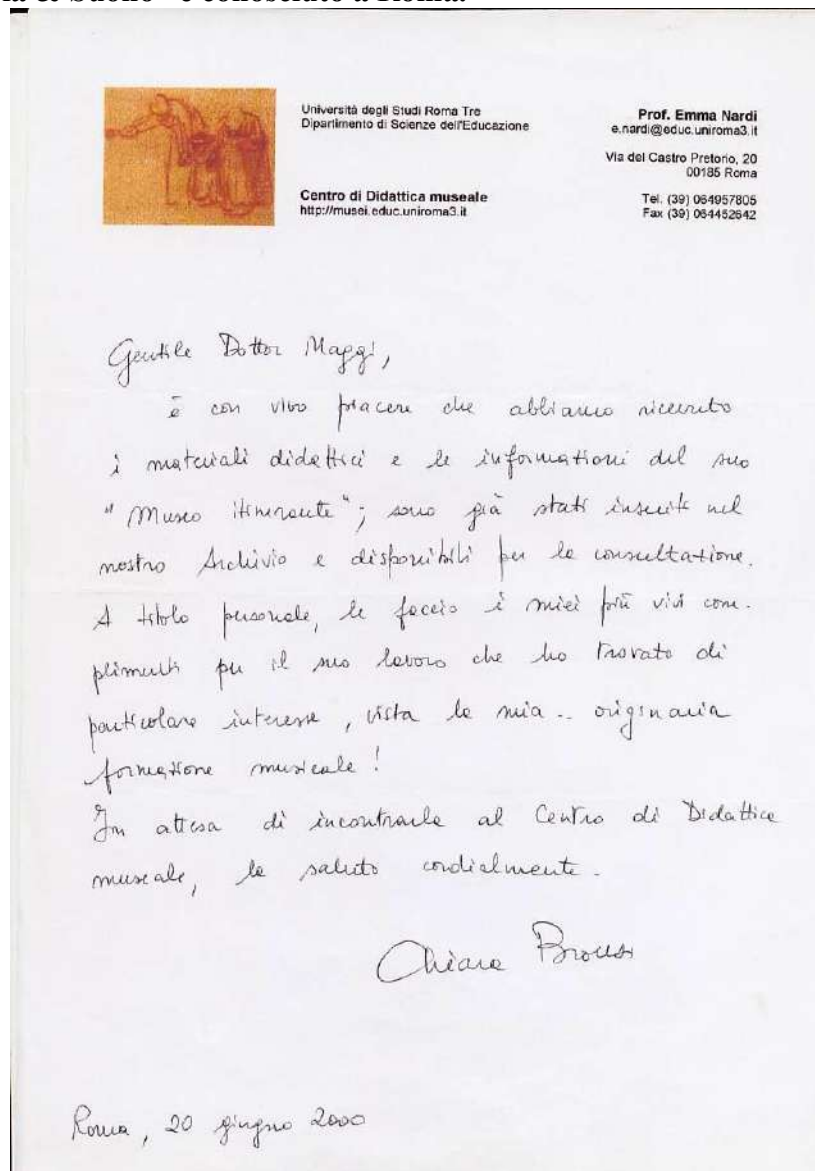 Università degli Studi Roma Tre
Dipartimento di Scienze dell'Educazione
Centro di Didattica museale
http://musei.educ.uniroma3.it
Prof. Emma Nardi
e.nardi@educ.uniroma3.it
Via del Castro Pretorio, 20
00185 Roma
Tel. (39) 064957805
Fax (39) 064452642
Gentile Dottor Maggi,
è con vivo piacere che abbiamo ricevuto
i materiali didattici e le informazioni del suo
"Museo itinerante"; sono già stati inseriti nel
nostro Archivio e disponibili per la consultazione.
A titolo personale, le faccio i miei più vivi com-
plimenti per il suo lavoro che ho trovato di
particolare interesse, vista la mia .. originaria
formazione musicale!
In attesa di incontrarla al Centro di Didattica
museale, la saluto cordialmente.
Chiara
Roma, 20 giugno 2000